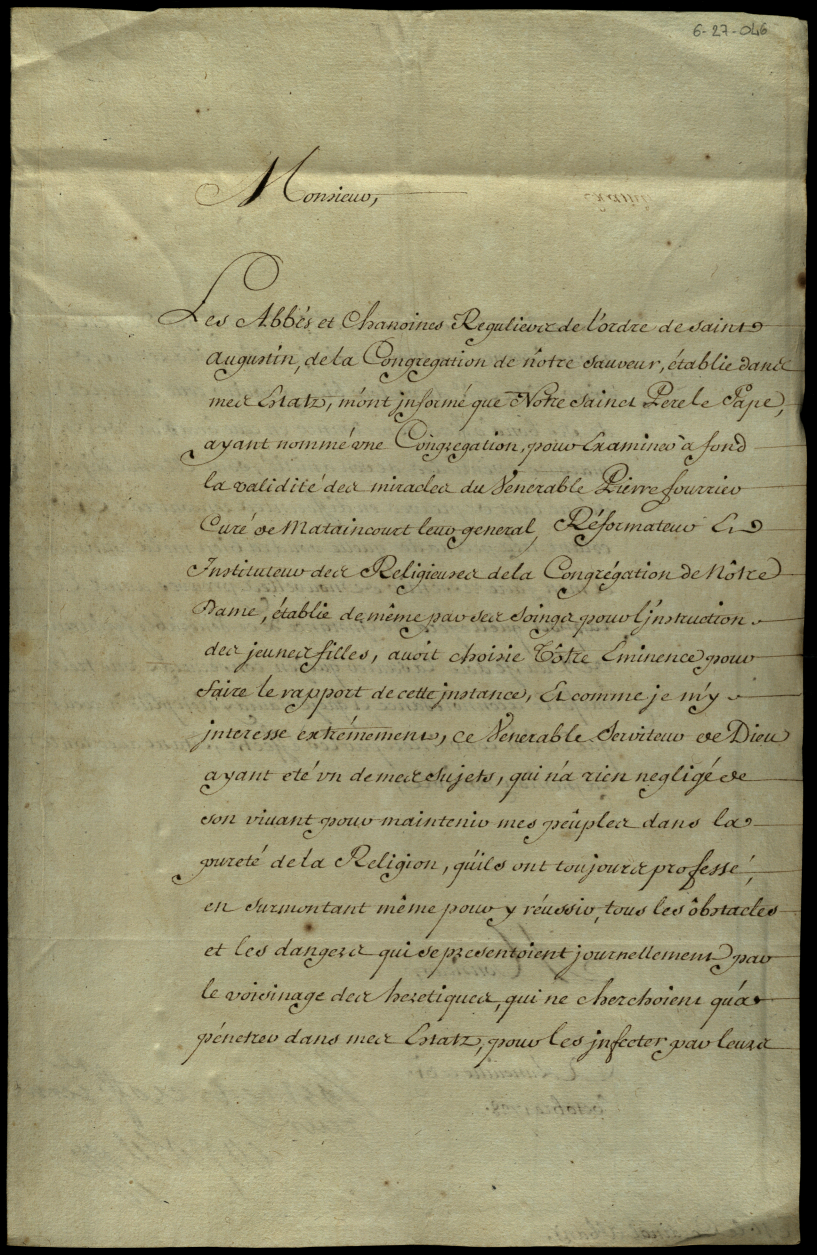 6-27-046
Monsieur,
Les Abbés et Chanoines Reguliers de l'ordre de saint
augustin, de la Congregation de nôtre sauveur, établie dans
mes Estatz, m'ont jnformé que Nôtre saint Pere le Pape,
ayant nommé vne Congregation, pour Examiner à fond
la validité des miracles du Venerable Pierre fourrier
Curé de Mataincourt leur general, Réformateur Et
Jnstituteur des Religieuses de la Congrégation de Nôtre
Dame, établie de même par ses soings pour l'jnstruction
des jeunes filles, avoit choisie Vôtre Eminence pour
faire le rapport de cette jnstance, Et comme je m'y
jnteresse extrémement, ce Venerable Serviteur de Dieu
ayant eté vn de mes sujets, qui n'a rien negligé de
son vivant pour maintenir mes peûples dans la
pureté de la Religion, qu'ils ont toujours professé,
en surmontant même pour y réussir, tous les ôbstacles
et les dangers qui se presentoient journellement par
le voisinage des heretiques, qui ne cherchoient qu'à
pénetrer dans mes Estatz, pour les jnfecter par leurs